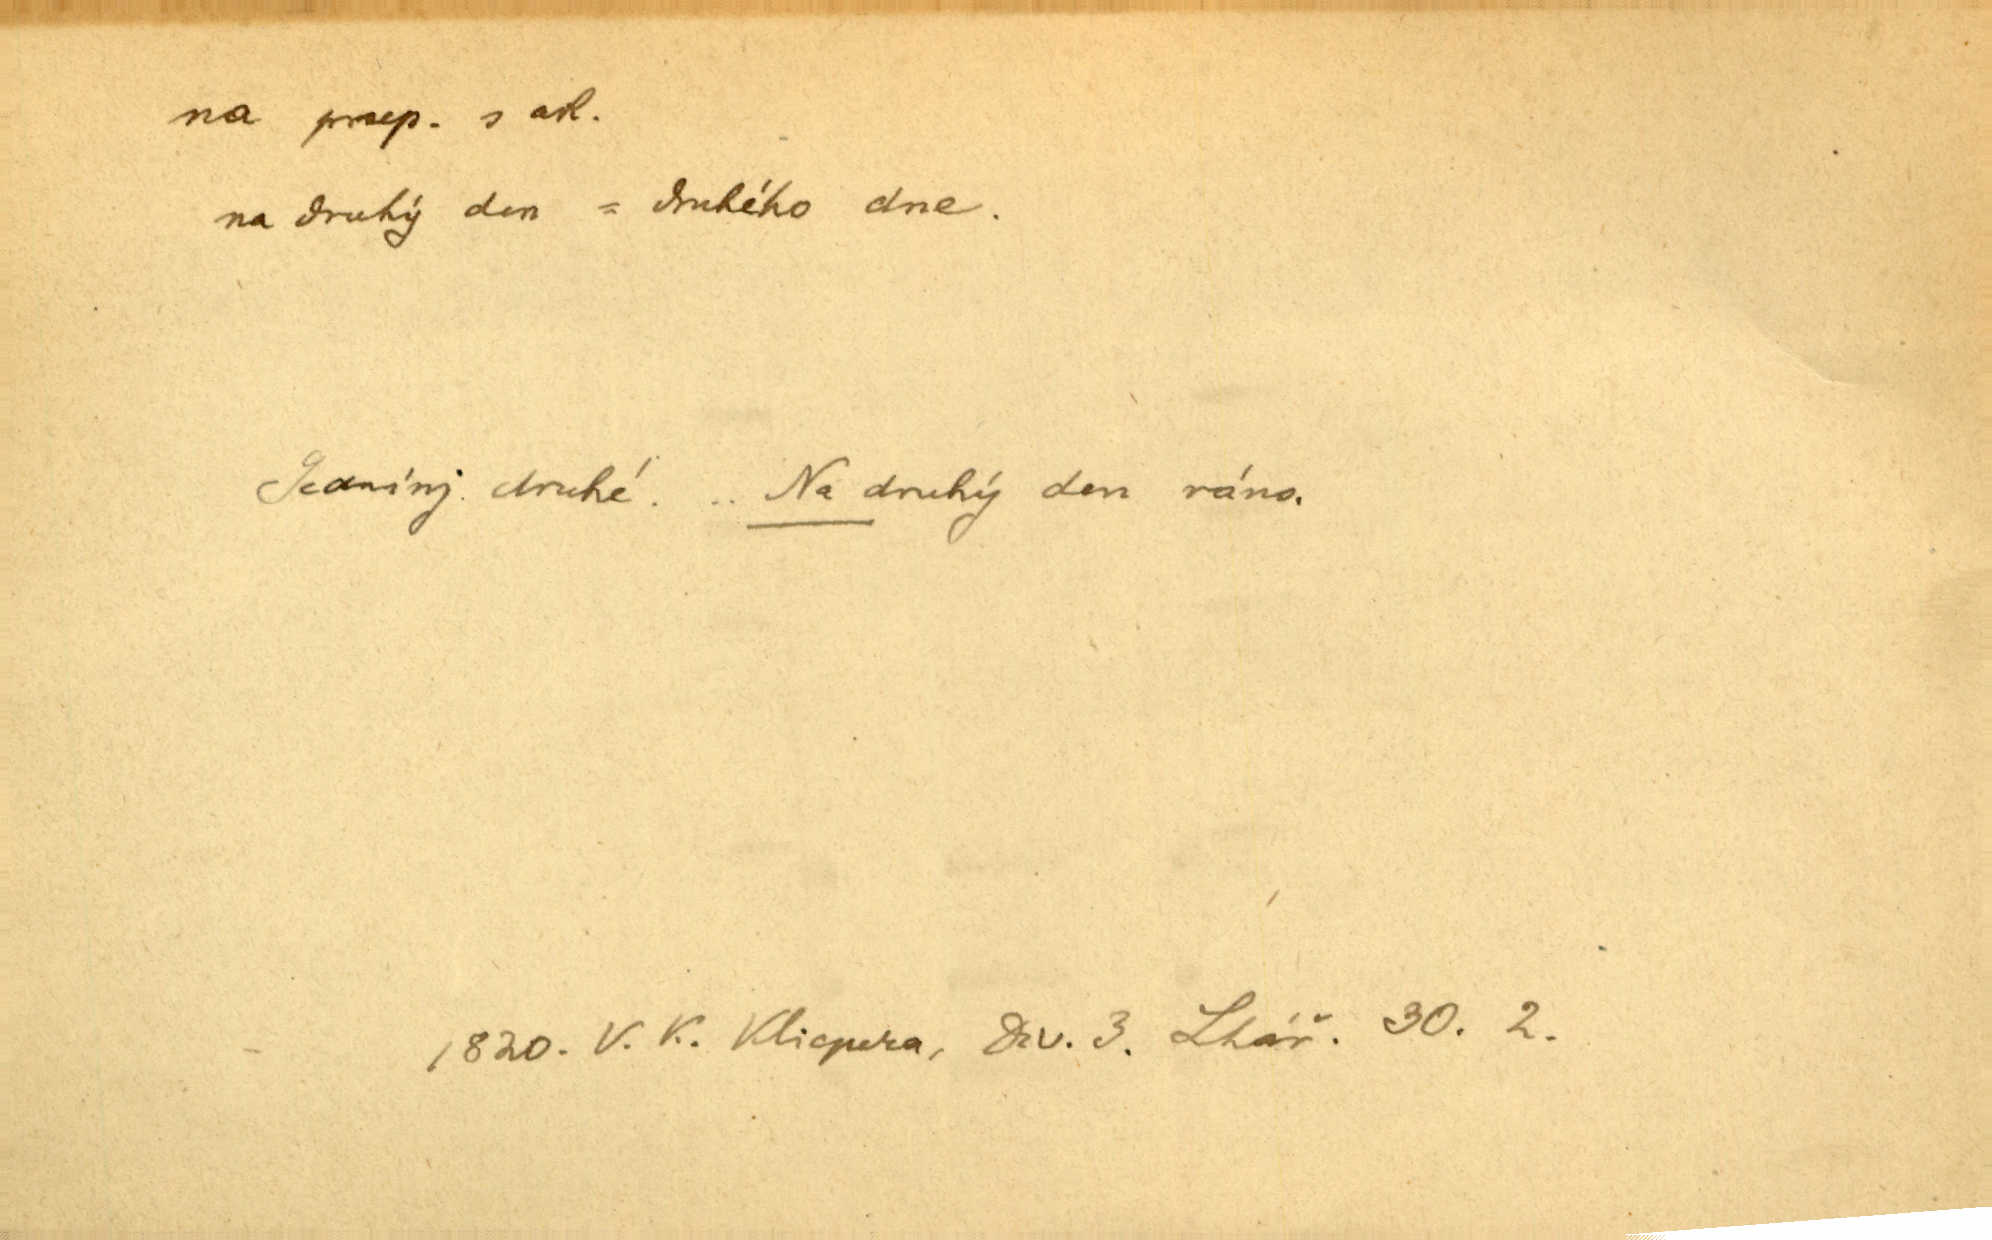 na praep. s ak.
na druhý den = druhého dne.
Jednánj. druhé. .. Na druhý den ráno.
1820. V. K. Klicpera, Div. 3. Lhář. 30. 2.